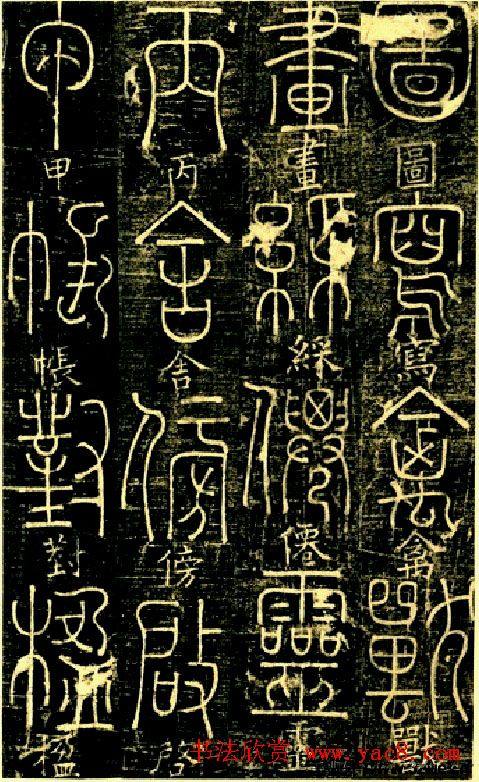 圖圖寫寫禽禽獸獸
畫畫綵綵僊僊靈靈
丙丙舍舍傍傍啓啓
甲甲帳帳對對楹楹
书法欣赏 www.yac8.com